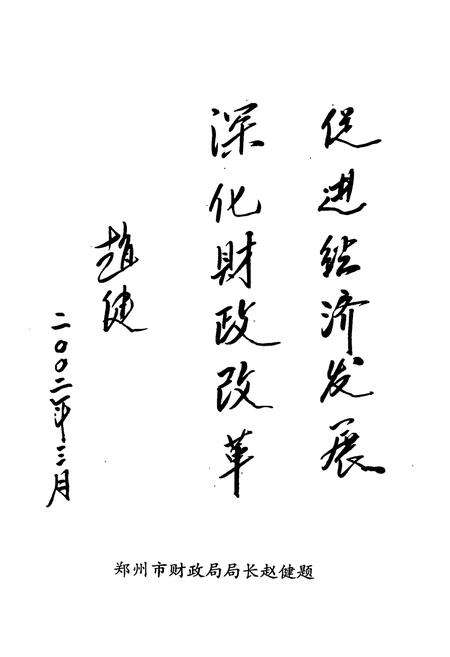 促进经济发展
深化财政改革
趙健
二〇〇二年三月
郑州市财政局局长赵健题